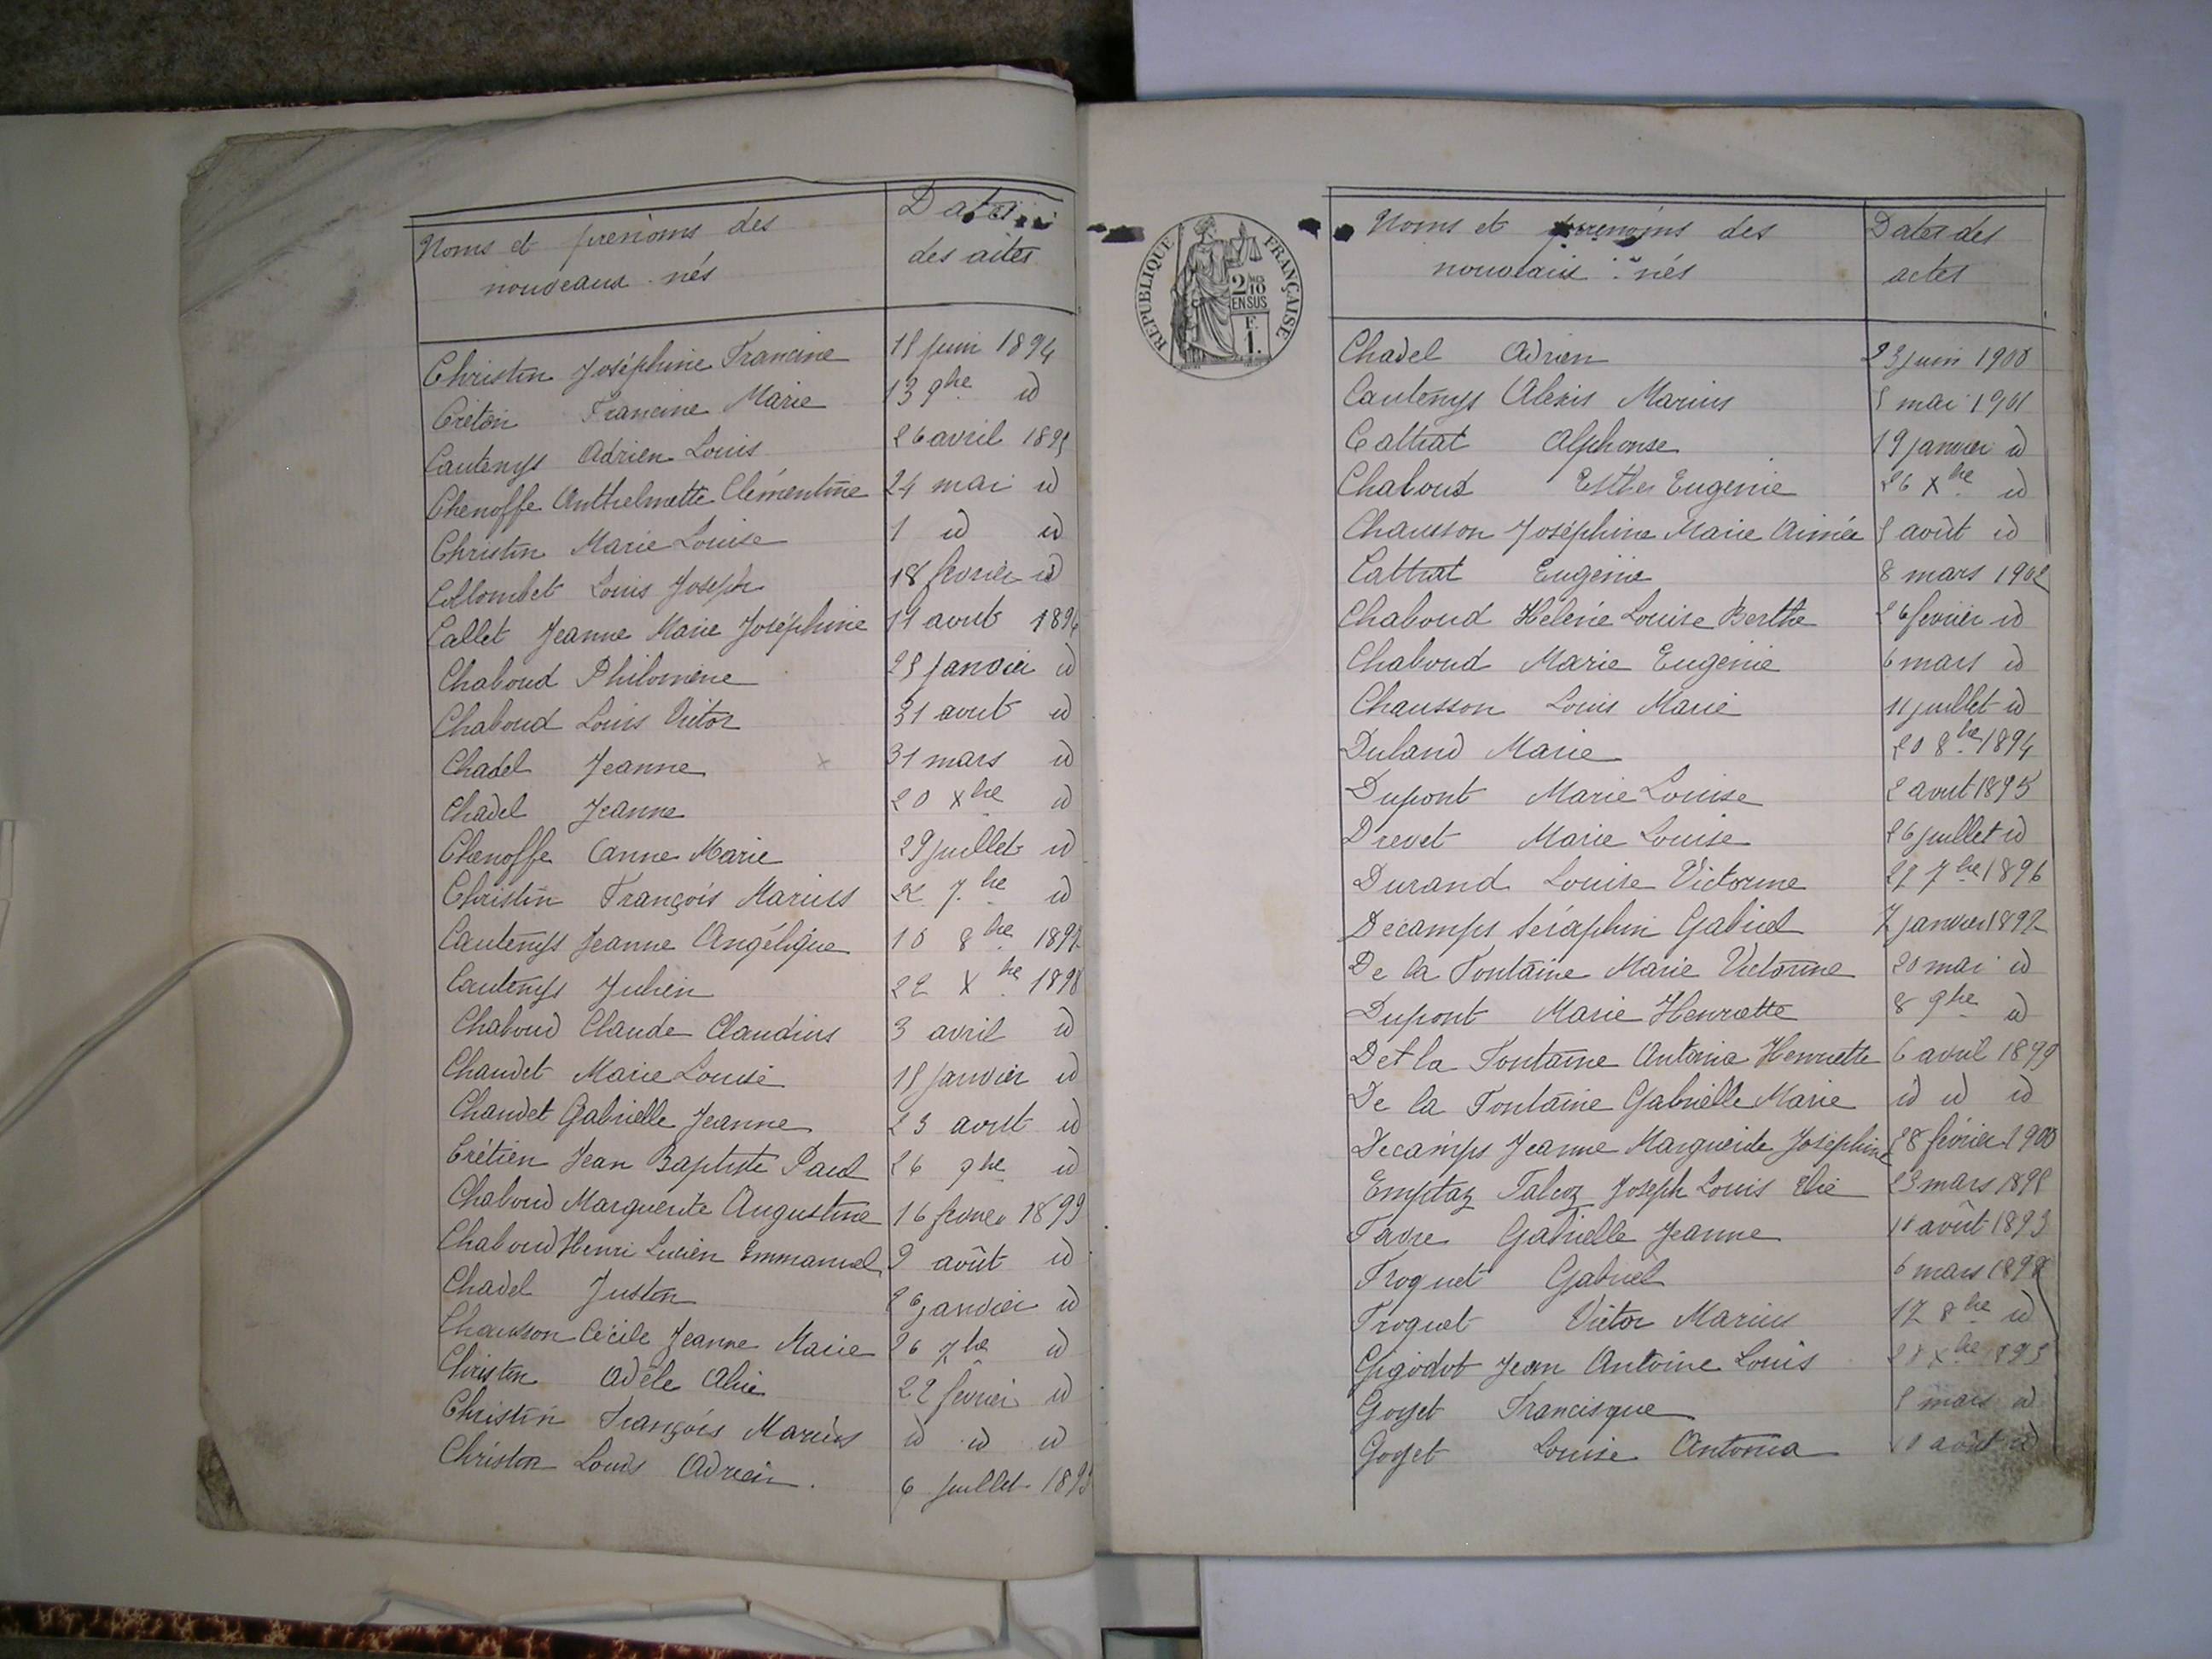 Noms et prénoms des
nouveaux nés
Dates
des actes
Christin Joséphine Francine 15 juin 1894
Creton Francine Marie 13 9bre id
Cautenys Adrien Louis 26 avril 1895
Chenoffe Anthelmette Clémentine 24 mai id
Christin Marie Louise 1 id id
Collombet Louis Joseph 18 février id
Callet Jeanne Marie Joséphine 11 aout 1896
Chaboud Philomène 25 janvier id
Chaboud Louis Victor 31 aout id
Chadel Jeanne 31 mars id
Chadel Jeanne 20 Xbre id
Chenoffe Anne Marie 29 juillet id
Christin François Marius 7bre id
Cautenys Jeanne Angélique 10 8bre 1897
Cautenys Julien 22 Xbre 1898
Chaboud Claude Claudius 3 avril id
Chaudet Marie Louise 15 janvier id
Chaudet Gabrielle Jeanne 23 aout id
Crétien Jean Baptiste Paul 26 9bre id
Chaboud Marguerite Augustine 16 février 1899
Chaboud Henri Lucien Emmanuel 9 août id
Chadel Justin 26 janvier id
Chausson Cécile Jeanne Marie 26 7bre id
Christin Adèle 22 février id
Christin François Marius id id id
Christin Louis Adrien. 6 juillet 1893
REPUBLIQUE FRANÇAISE
2/10
EN SUS
F.
1.
Noms et prénoms des
nouveaux nés
Dates des
actes
Chadel Adrien 23 juin 1900
Cautenys Alexis Marius 5 mai 1901
Cattrat Alphonse 19 janvier id
Chaboud Esther Eugenie 26 Xbre id
Chausson Joséphine Marie Aimée 5 août id
Cattrat Eugénie 8 mars 1902
Chaboud Helène Louise Berthe 26 février id
Chaboud Marie Eugénie 6 mars id
Chausson Louis Marie 11 juillet id
Duland Marie 20 8bre 1894
Dupont Marie Louise 2 aout 1895
Drevet Marie Louise 26 juillet id
Durand Louise Victorine 27 7bre 1896
Decamps Séraphin Gabriel 7 janvier 1897
De la Fontaine Marie Victorine 20 mai id
Dupont Marie Henriette 8 9bre id
Det la Fontaine Antonia Henriette 6 avril 1899
De la Fontaine Gabrielle Marie id id id
Decamps Jeanne Marguerite Joséphine 28 février 1900
Emptaz Falcoz Joseph Louis Elie 23 mars 1898
Favre Gabrielle Jeanne août 1893
Froquet Gabriel 6 mars 1898
Froquet Victor Marius 17 8bre id
Gigodot Jean Antoine Louis 28 Xbre 1893
Goyet Francisque mars id
Goyet Louise Antonia 10 août id